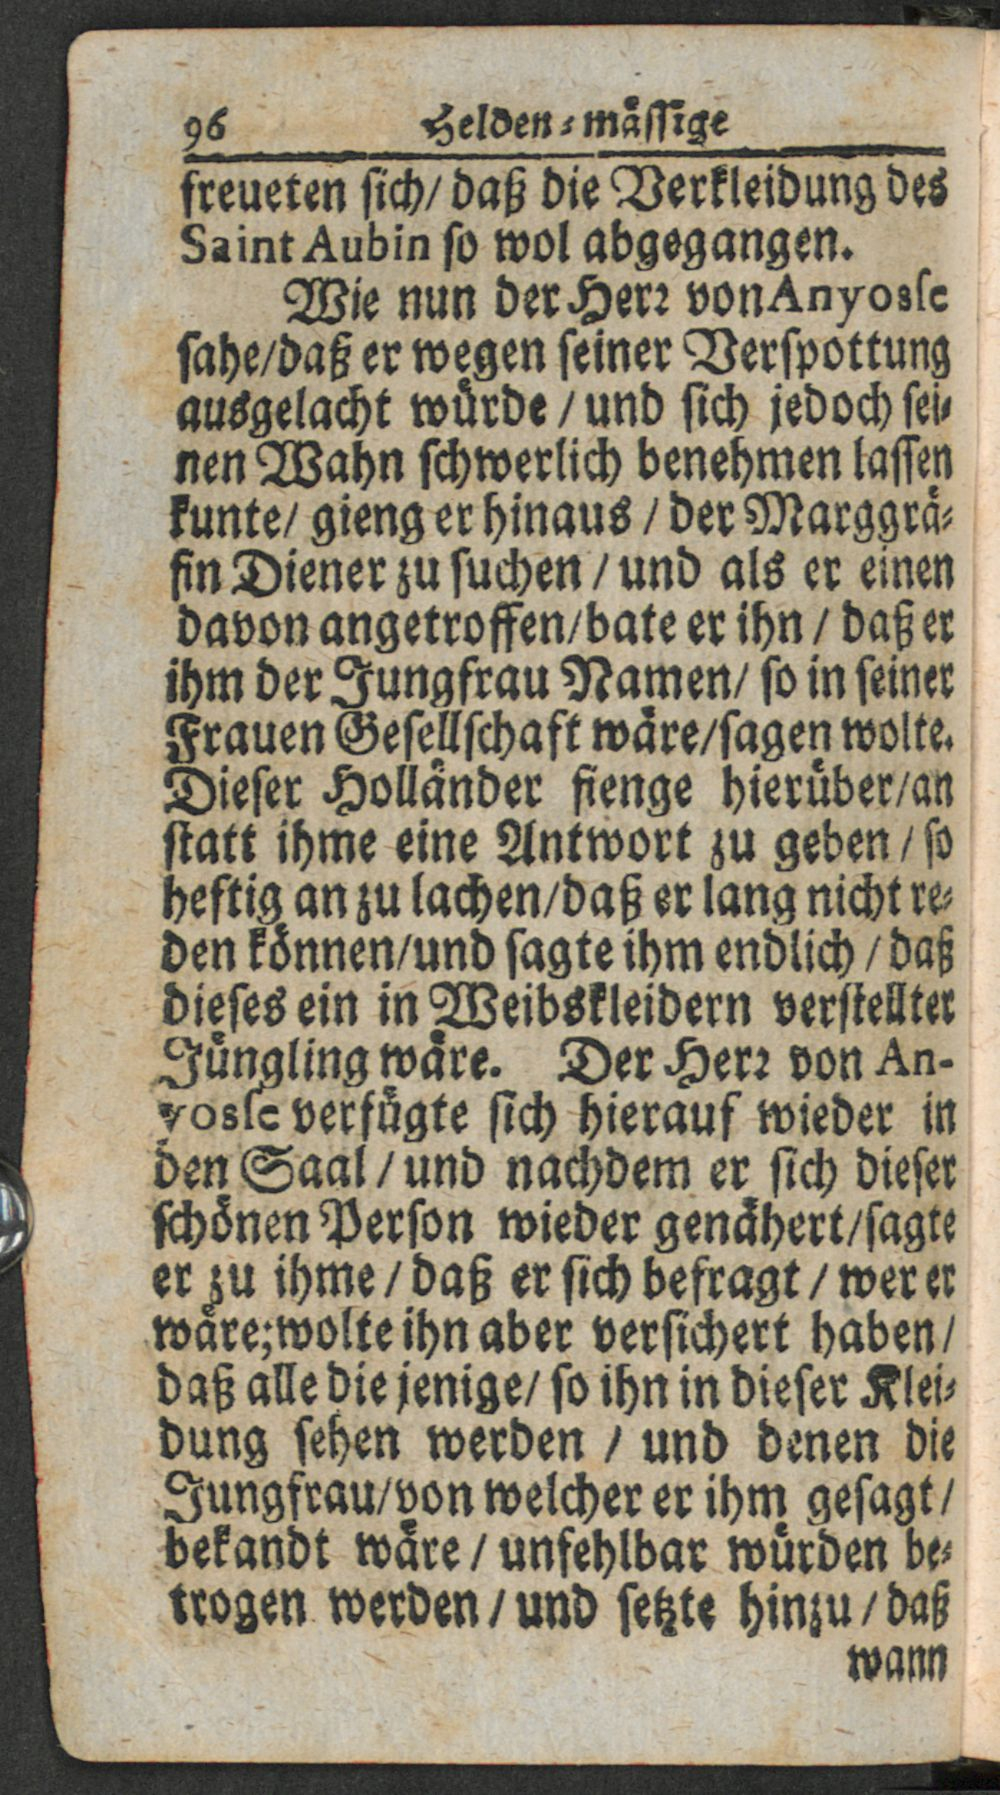 96 Helden-mässige
freueten sich/ daß die Verkleidung des
Saint Aubin so wol abgegangen.
Wie nun der Herr von Anyosse
sahe/daß er wegen seiner Verspottung
ausgelacht würde / und sich jedoch sei-
nen Wahn schwerlich benehmen lassen
kunte/ gieng er hinaus / der Marggrä-
fin Diener zu suchen / und als er einen
davon angetroffen/bate er ihn / daß er
ihm der Jungfrau Namen/ so in seiner
Frauen Gesellschaft wäre/sagen wolte.
Dieser Holländer fienge hierüber/an
statt ihme eine Antwort zu geben / so
heftig an zu lachen/daß er lang nicht re-
den können/und sagte ihm endlich / daß
dieses ein in Weibskleidern verstellter
Jüngling wäre. Der Herr von An-
yosse verfügte sich hierauf wieder in
den Saal / und nachdem er sich dieser
schönen Person wieder genähert/sagte
er zu ihme / daß er sich befragt / wer er
wäre;wolte ihn aber versichert haben/
daß alle die jenige/ so ihn in dieser Klei-
dung sehen werden / und denen die
Jungfrau/von welcher er ihm gesagt/
bekandt wäre / unfehlbar würden be-
trogen werden / und setzte hinzu / daß
wann